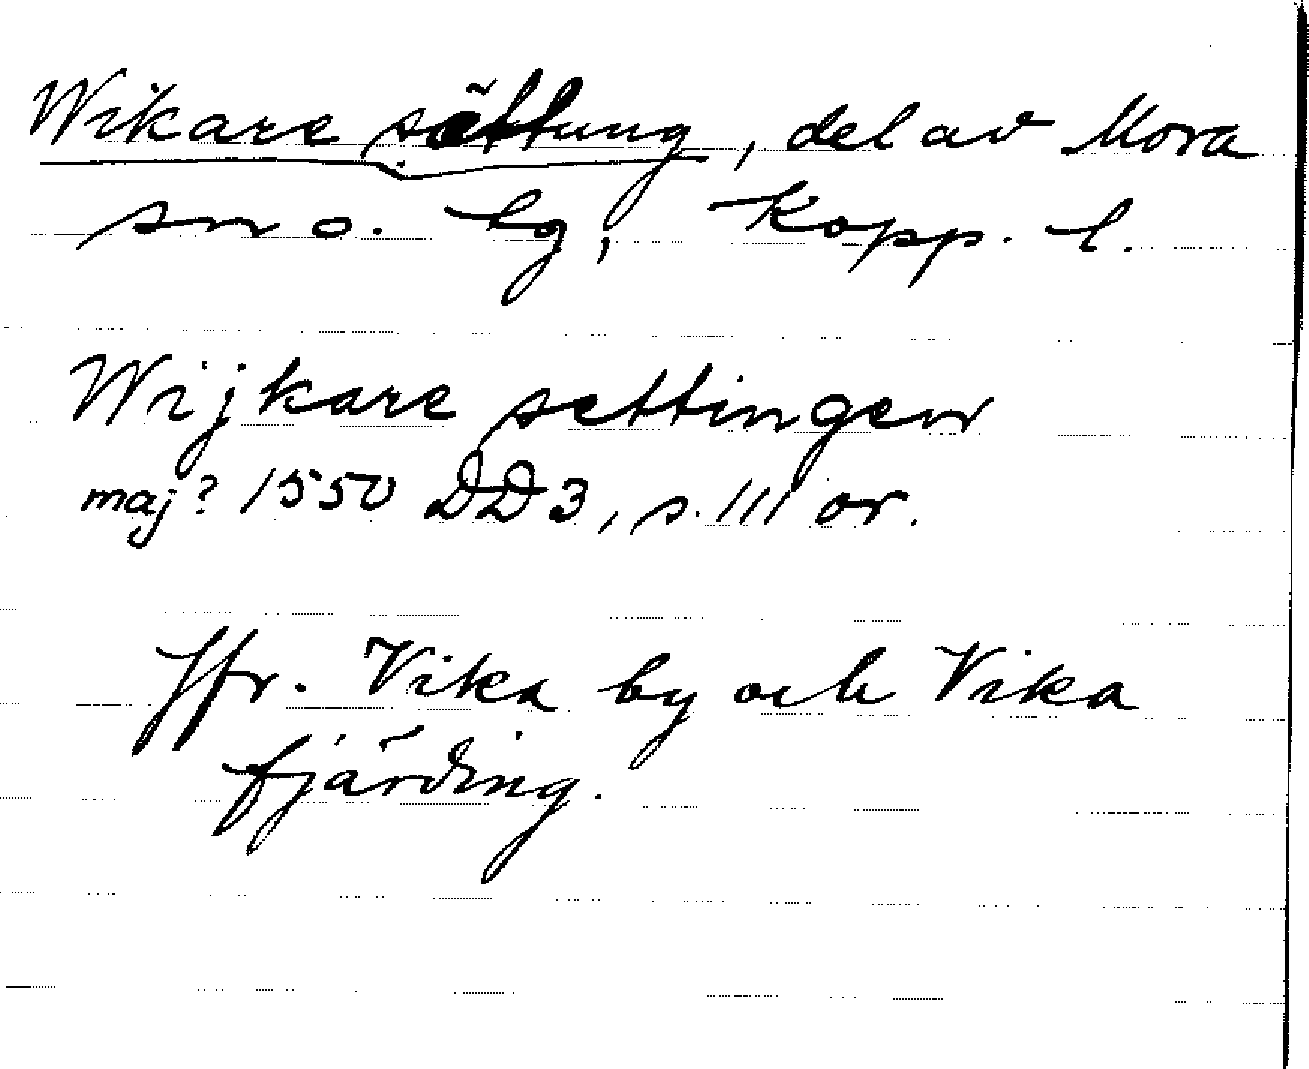 Wikare sättung, del av Mora
sn o. tg, Kopp. l.
Wijkare settingen
maj? 1550 DD3, s. 111 or.
Jfr. Vika by och Vika
fjärding.